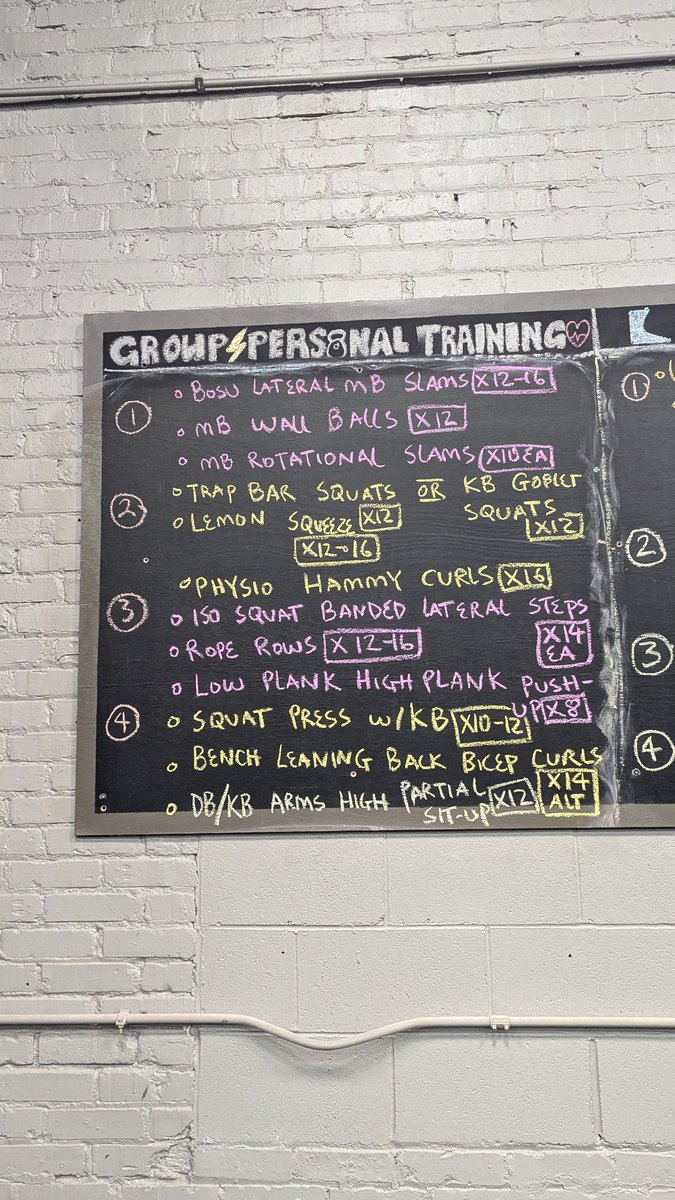 GROUP⚡PERSONAL TRAINING
①
• BOSU LATERAL MB SLAMS X12-16
• MB WALL BALLS X12
• MB ROTATIONAL SLAMS X10EA
②
• TRAP BAR SQUATS OR KB GOBLET
SQUATS X12
• LEMON SQUEEZE X12
X12-16
• PHYSIO HAMMY CURLS X16
③
• ISO SQUAT BANDED LATERAL STEPS
X14 EA
• ROPE ROWS X12-16
• LOW PLANK HIGH PLANK PUSH-
UP X8
④
• SQUAT PRESS W/KB X10-12
• BENCH LEANING BACK BICEP CURLS
X14 ALT
• DB/KB ARMS HIGH PARTIAL
SIT-UP X12
①
②
③
④